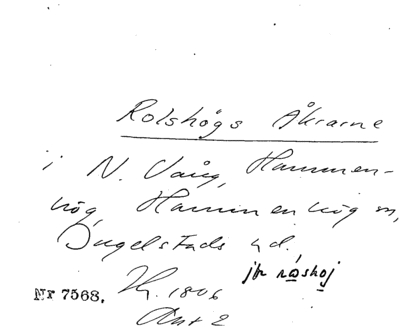 Rolshögs Åkrarne
i N. Vång, Hammen-
hög, Hammenhög sn,
Ingelstads hd.
jfr råshøj
Nr 7568.
1806
Akt 2